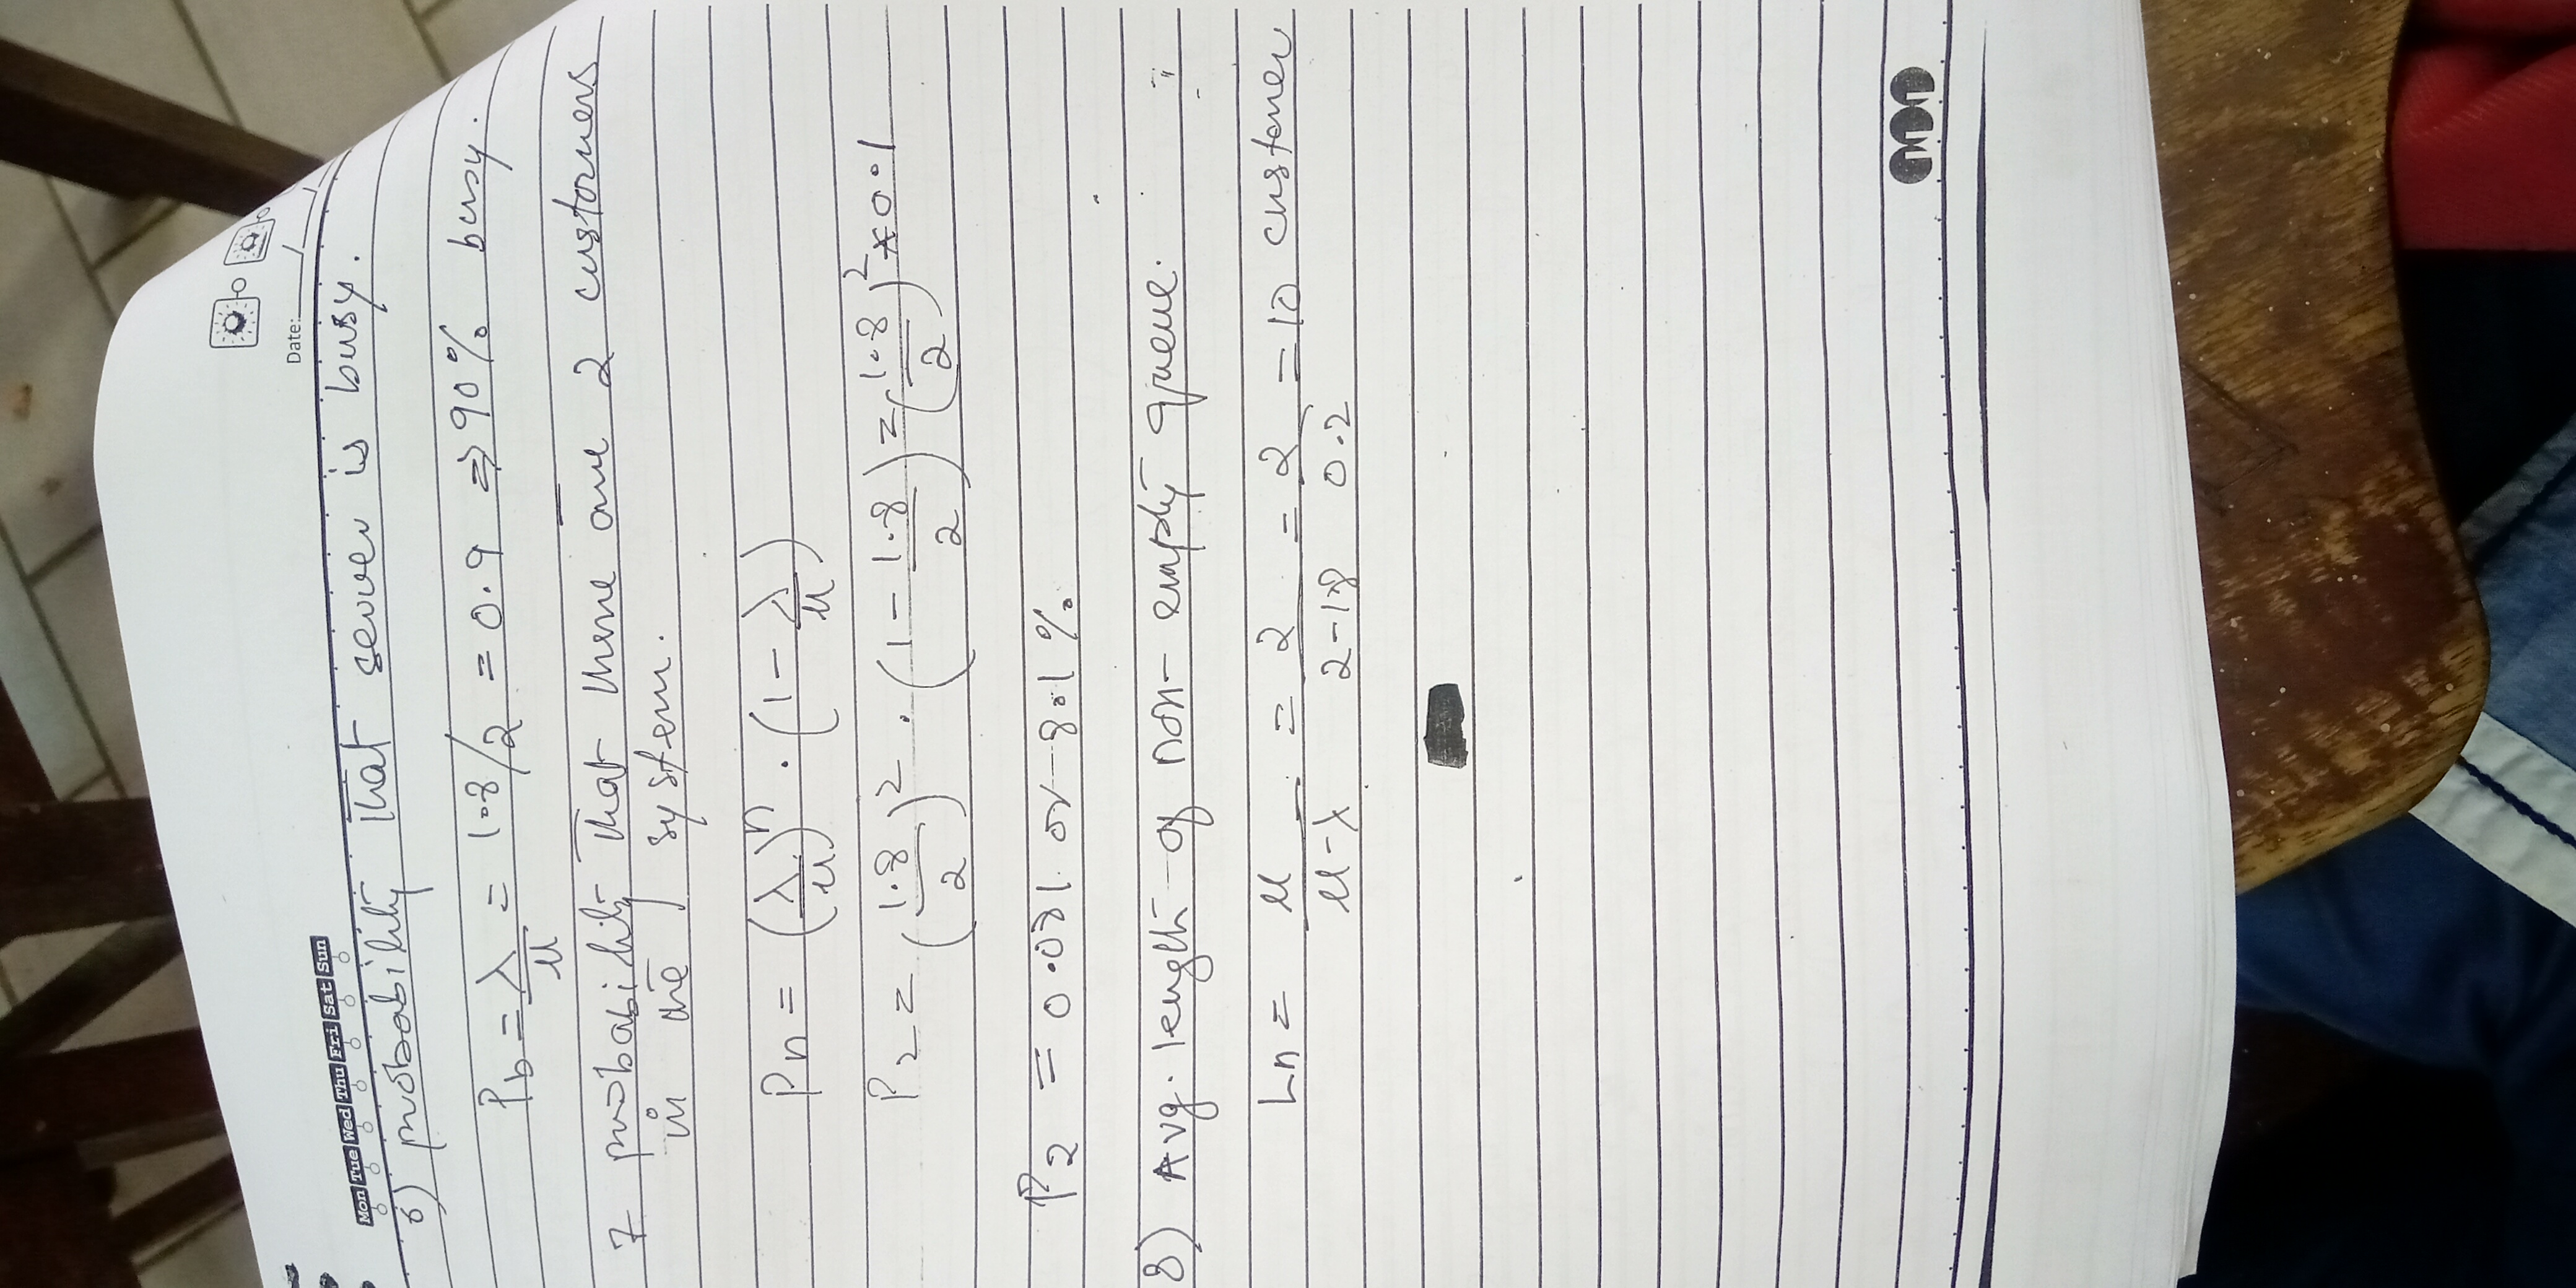 Mon Tue Wed Thu Fri Sat Sun
Date:
6) probability that server is busy.
Pb = λ/μ = 1.8/2 = 0.9 ⇒ 90% busy.
7 probability that there are 2 customers
in the system.
Pn = (λ/μ)ⁿ . (1 - λ/μ)
P2 = (1.8/2)² . (1 - 1.8/2) = (1.8/2)² × 0.1
P2 = 0.081 or 8.1%.
8) Avg. length of non-empty queue.
Ln = μ/(μ-λ) = 2/(2-1.8) = 2/0.2 = 10 customer